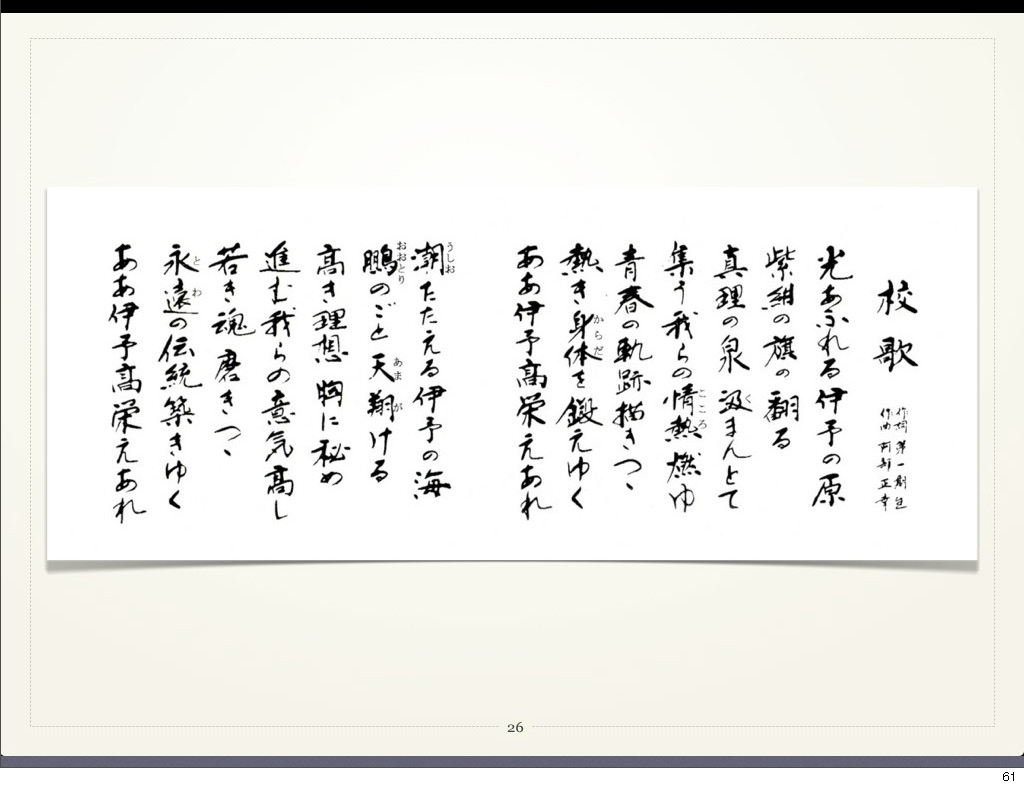 校歌
作詞 第一創包
作曲 阿部正幸
光あふれる伊予の原
紫紺の旗の翻る
真理の泉 汲まんとて
く
集う我らの情熱燃ゆ
こころ
青春の軌跡描きつゝ
熱き身体を鍛えゆく
からだ
ああ伊予高栄えあれ
潮たたえる伊予の海
うしお
鵬のごと天翔ける
おおとり
あまが
高き理想 胸に秘め
進む我らの意気高し
若き魂 磨きつゝ
永遠の伝統築きゆく
とわ
ああ伊予高栄えあれ
26
61